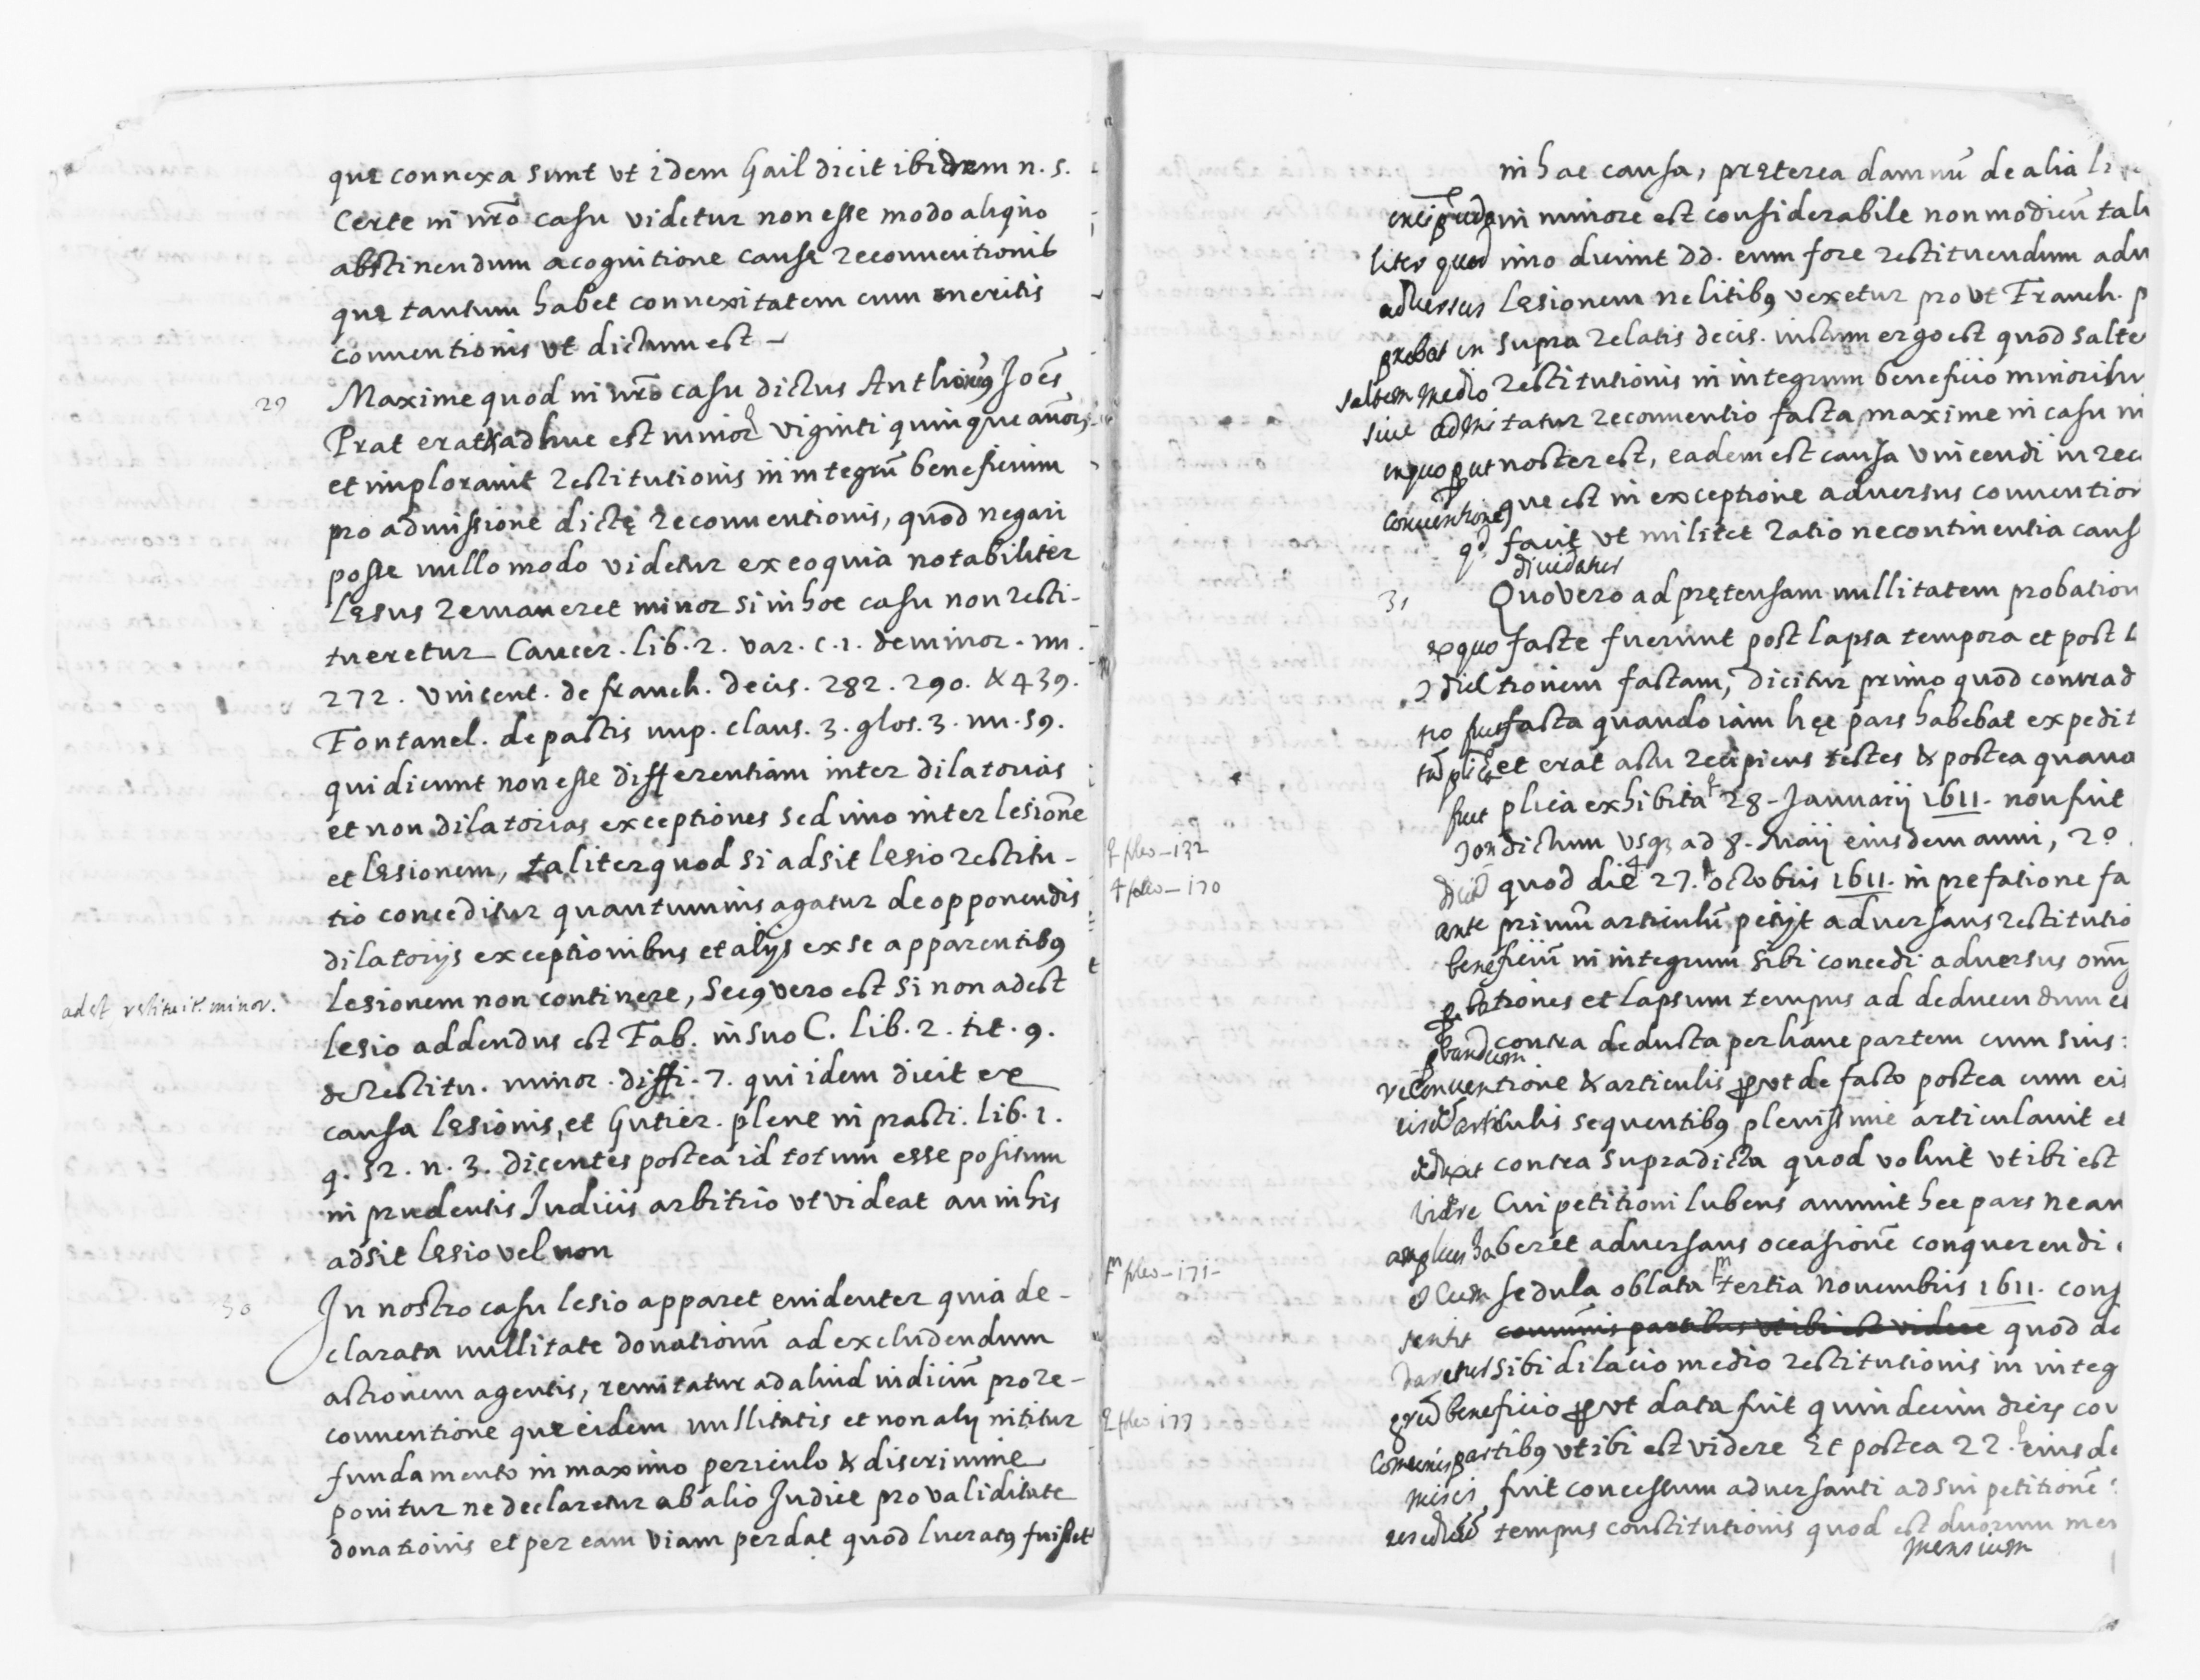 quę connexa sunt vt idem Gail dicit ibidem n. 5.
Certe in nr̃o casu videtur non esse modo aliquo
abstinendum a cognitione causę reconuentionis
quę tantum habet connexitatem cum meritis
conuentionis vt dictum est –
29 Maxime quod in nr̃o casu dictus Anthonius Joẽs
Prat erat & adhuc est minor viginti quinque annor̃
et implorauit restitutionis in integrũ beneficium
pro admissione dictę reconuentionis, quod negari
posse nullo modo videtur ex eo quia notabiliter
lęsus remaneret minor si in hoc casu non resti-
tueretur Cancer. lib. 2. var. c. 1. de minor. nu.
272. Vincent. de franch. decis. 282. 290. & 439.
Fontanel. de pactis nup. claus. 3. glos. 3. nu. 59.
qui dicunt non esse differentiam inter dilatorias
et non dilatorias exceptiones sed imo inter lesionẽ
et lęsionem, taliter quod si adsit lęsio restitu-
tio conceditur quantumuis agatur de opponendis
dilatorijs exceptionibus et alijs ex se apparentibꝯ
adest restituit. minor.
lesionem non continere, Secꝯ vero est si non adest
lesio addendus est Fab. in suo C. lib. 2. tit. 9.
de restitu. minor. diffi. 7. qui idem dicit ex
causa lęsionis, et Gutier. plene in practi. lib. 1.
q. 52. n. 3. dicentes postea id totum esse positum
in prudentis Judicis arbitrio vt videat an in his
adsit lęsio vel non
30 In nostro casu lesio apparet euidenter quia de-
clarata nullitate donationũ ad excludendum
actionem agentis, remitatur ad aliud iudiciũ pro re-
conuentione quę eidem nullitatis et non alij nititur
fundamento in maximo periculo & discrimine
ponitur ne declaretur ab alio Judice pro validitate
donationis et per eam viam perdat quod lucratꝯ fuisset
in hac causa, pręterea damnũ de alia
in minore est considerabile non modicũ tali
liter quod imo dicunt DD. eum fore restituendum adu
aduersus lęsionem ne litibꝯ vexetur pro vt Franch. p
probat in supra relatis decis. iustum ergo est quod salte
saltem medio restitutionis in integrum beneficio minoribu
siue admitatur reconuentio facta maxime in casu in
in quo put noster est, eadem est causa vincendi in rec
conuentione que est in exceptione aduersus conuention
qd facit vt militet ratio ne continentia caus
diuidatur
31 Quo vero ad prętensam nullitatem probation
ex quo facte fuerunt post lapsa tempora et post
dictionem factam, dicitur primo quod contrad
tio fuit facta quando iam hęc pars habebat expedit
et erat actu recipiens testes & postea quand
fuit plica exhibita 28 Januarij 1611. non fuit
2 foleo – 132
dictum vsqꝫ ad 8. Maij eiusdem anni, 2º
4 foleo – 170
quod die 27. octobris 1611. in prefatione fa
ante primũ articulũ petijt aduersans restitutio
beneficiũ in integrum sibi concedi aduersus omn
et lapsum tempus ad deducendum e
contra deducta per hanc partem cum suis
reconuentione & articulis prout de facto postea cum eis
articulis sequentibꝯ plenissime articulauit et
deduxit contra supradicta quod voluit vt ibi est
videre Cui petitioni lubens annuit hec pars ne an
amplius haberet aduersans occasionẽ conquerendi
foleo – 171 –
et cum sedula oblata tertia Nouembris 1611. cons
sentit communis partibus vt ibi est videre quod da
daretur sibi dilacio medio restitutionis in integ
grũ beneficio prout data fuit quindecim dier̃ com
2 foleo 177
communis partibꝯ vt ibi est videre Et postea 22. eiusde
fuit concessum aduersanti ad sui petitionẽ
tempus constitutionis quod est duorum men
mensium